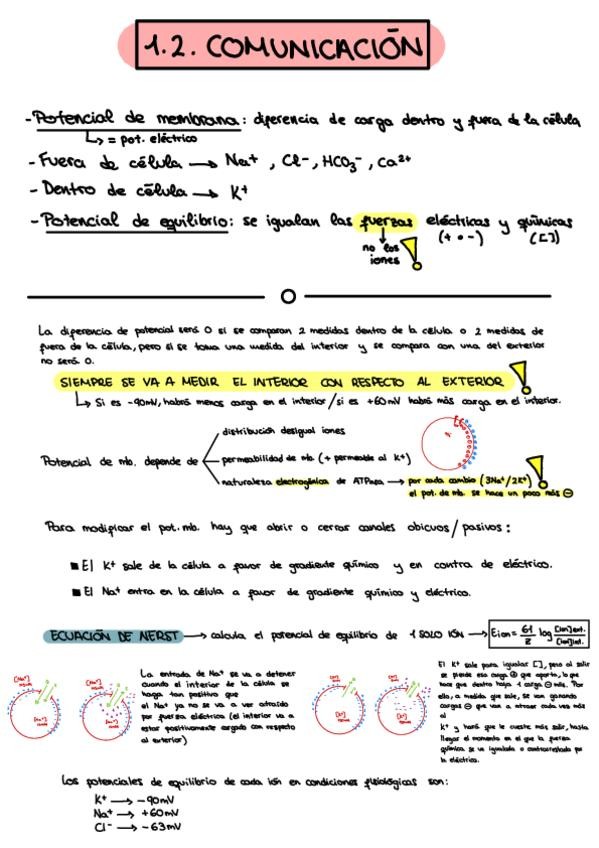 1.2. COMUNICACIÓN
- Potencial de membrana: diferencia de carga dentro y fuera de la célula
↳ = pot. eléctrico
- Fuera de célula → Na+, Cl-, HCO3-, Ca2+
- Dentro de célula → K+
- Potencial de equilibrio: se igualan las fuerzas eléctricas y químicas
(+ o -) ([])
no los
iones
La diferencia de potencial será 0 si se comparan 2 medidas dentro de la célula o 2 medidas de
fuera de la célula, pero si se toma una medida del interior y se compara con una del exterior
no será 0.
SIEMPRE SE VA A MEDIR EL INTERIOR CON RESPECTO AL EXTERIOR
↳ Si es -90mV, habrá menos carga en el interior/si es +60mV habrá más carga en el interior.
distribución desigual iones
Potencial de mb. depende de
permeabilidad de mb. (+ permeable al K+)
naturaleza electrogénica de ATPasa → por cada cambio (3Na+/2K+)
el pot. de mb. se hace un poco más ⊖
Para modificar el pot. mb. hay que abrir o cerrar canales obicuos/pasivos:
■ El K+ sale de la célula a favor de gradiente químico y en contra de eléctrico.
■ El Na+ entra en la célula a favor de gradiente químico y eléctrico.
ECUACIÓN DE NERST → calcula el potencial de equilibrio de 1 SOLO IÓN → Eion = 61/z log [ion]ext./[ion]int.
La entrada de Na+ se va a detener
cuando el interior de la célula se
haga tan positivo que
el Na+ ya no se va a ver atraído
por fuerza eléctrica (el interior va a
estar positivamente cargado con respecto
al exterior)
El K+ sale para igualar [], pero al salir
se pierde esa carga ⊕ que aporta, lo que
hace que dentro haya 1 carga ⊖ más. Por
ello, a medida que sale, se van ganando
cargas ⊖ que van a atraer cada vez más
al
K+ y hará que le cueste más salir, hasta
llegar el momento en el que la fuerza
química se ve igualada o contrarrestada por
la eléctrica.
Los potenciales de equilibrio de cada ión en condiciones fisiológicas son:
K+ → -90mV
Na+ → +60mV
Cl- → -63mV